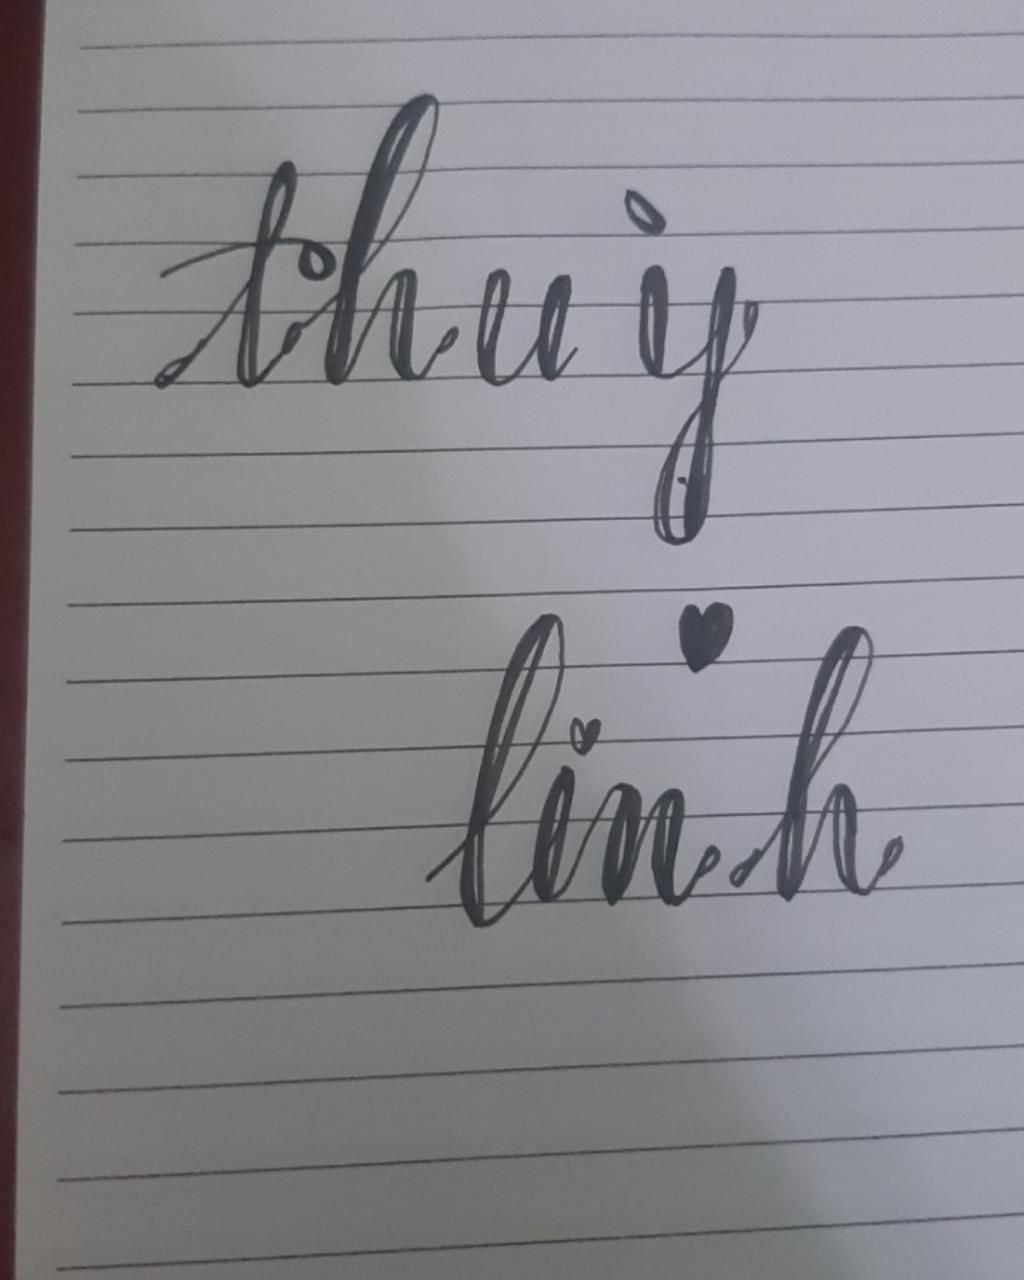 thuỳ
linh